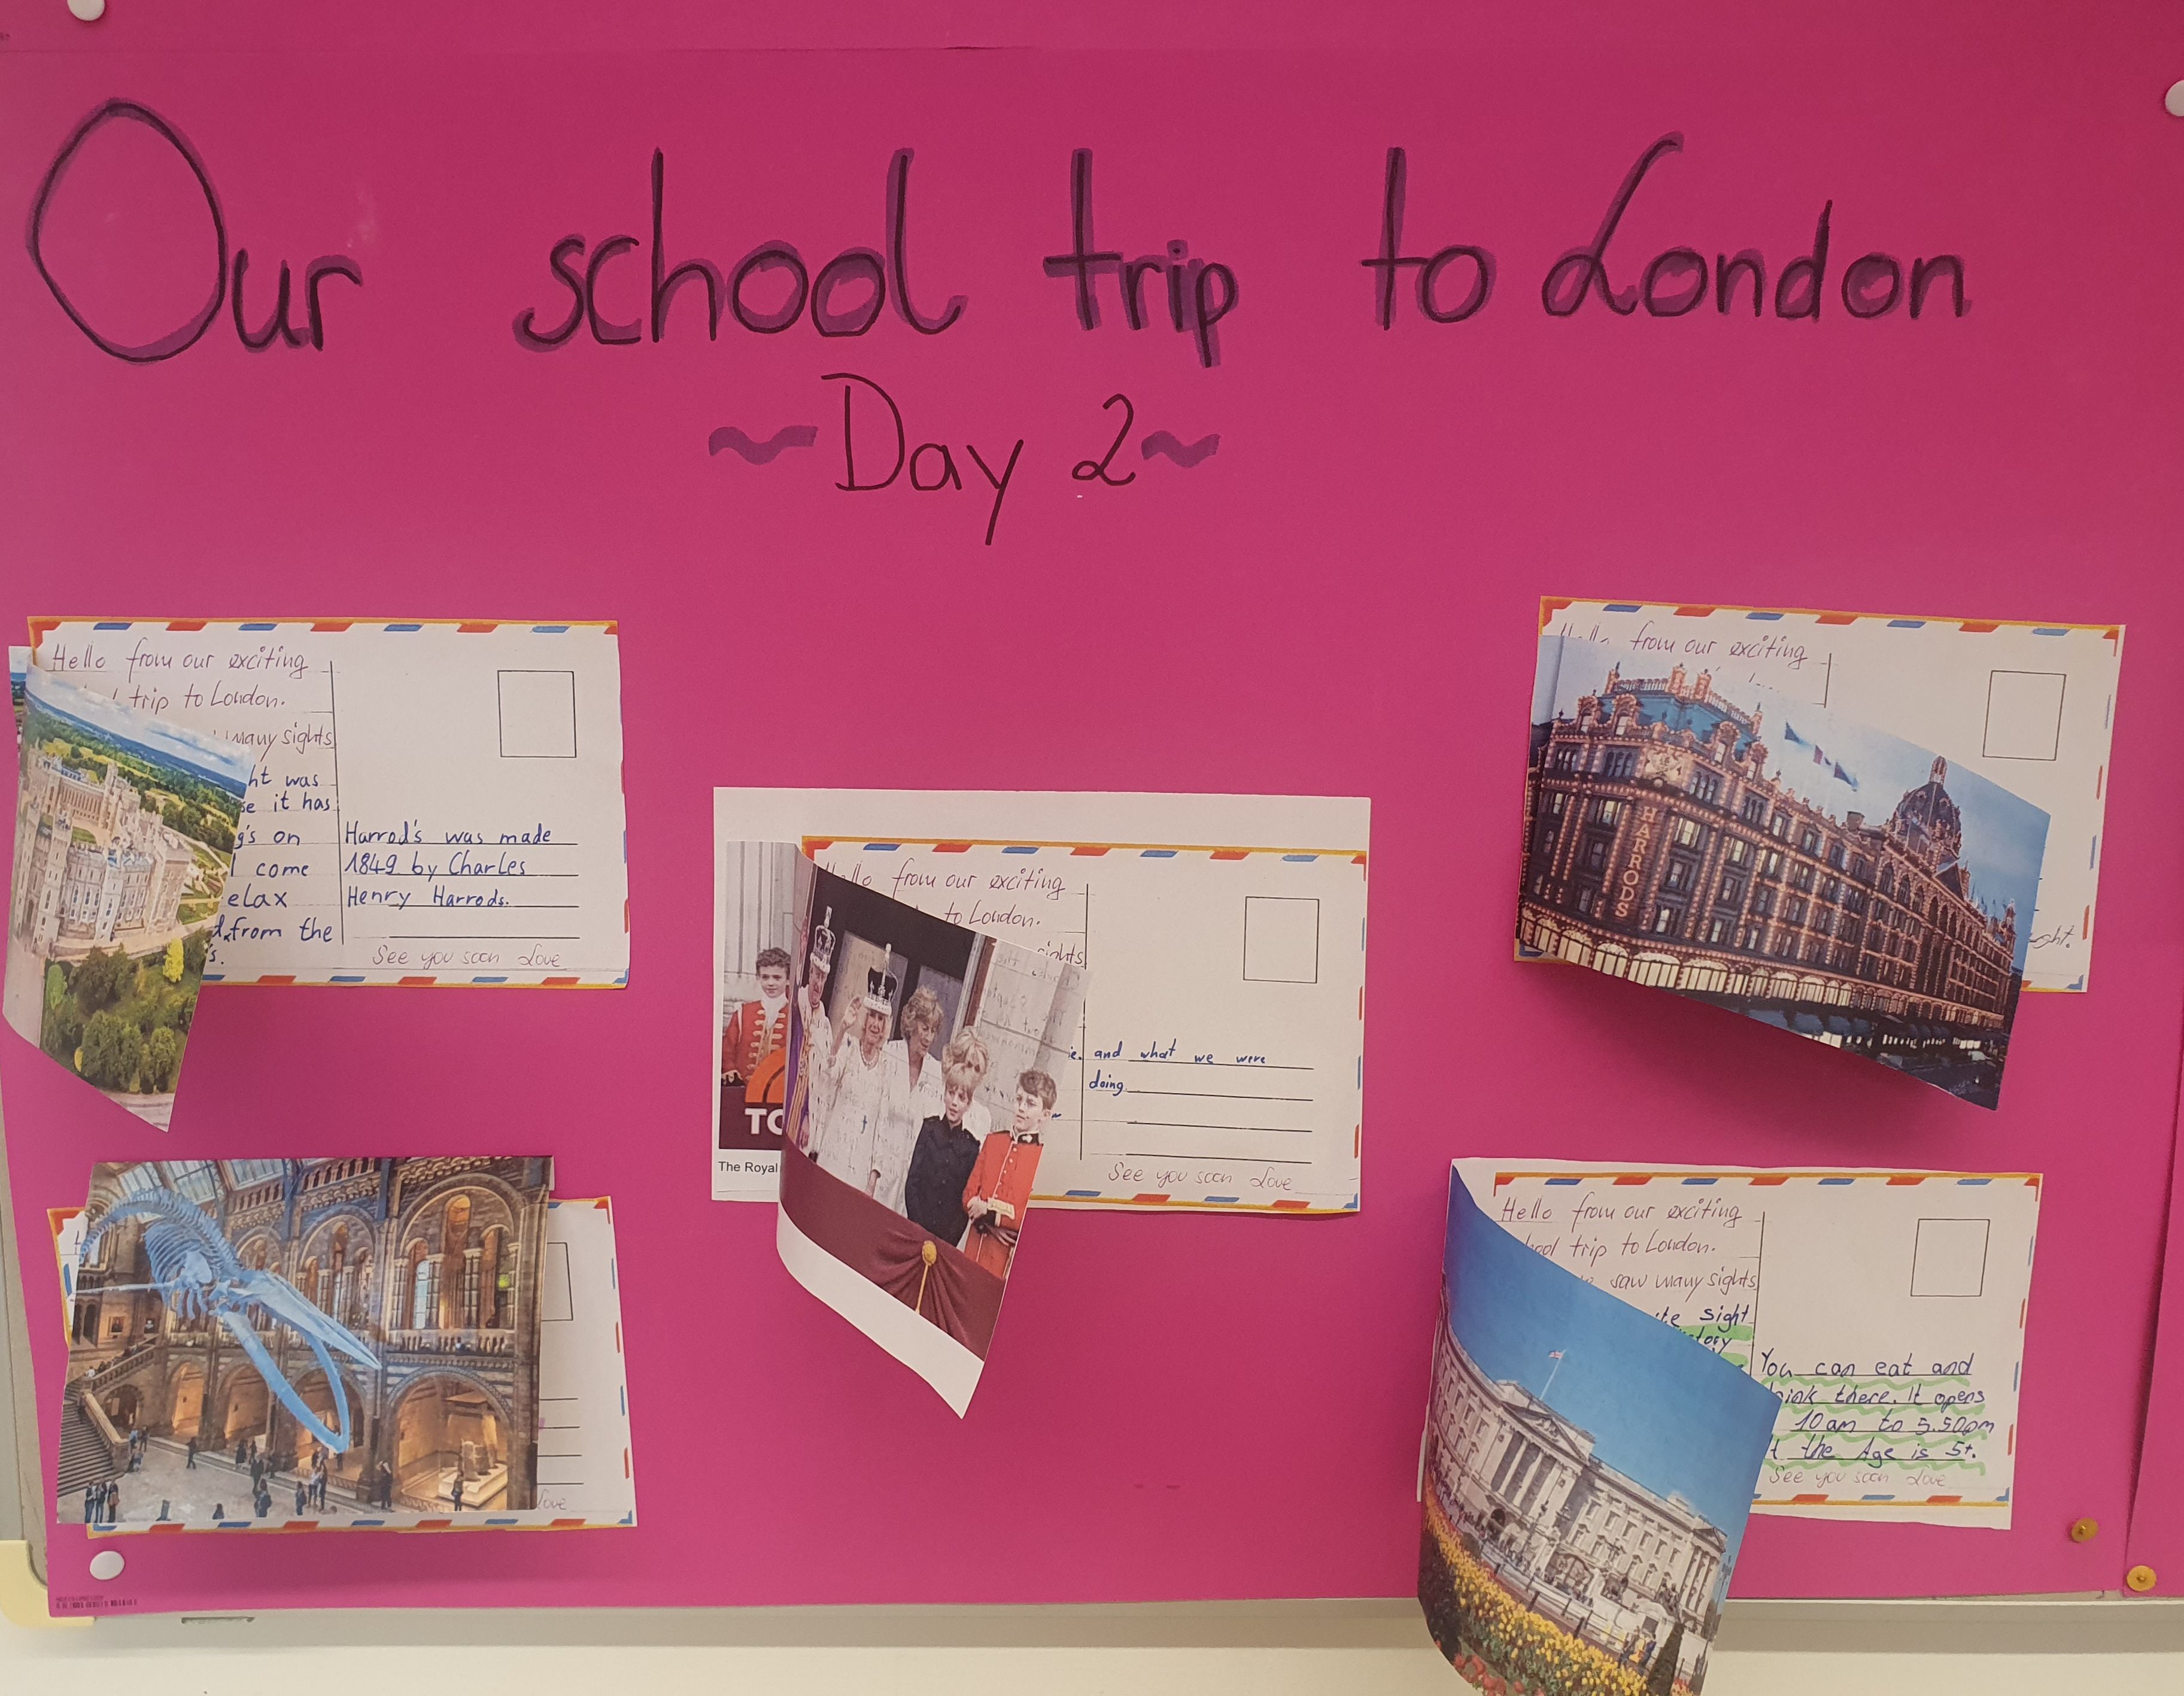 Our school trip to London
~Day 2~
Hello from our exciting
trip to London.
many sights
ht was
it has
g's on
come
elax
from the
s.
Harrod's was made
1849 by Charles
Henry Harrods.
See you soon Love
from our exciting
HARRODS
ght.
Hello from our exciting
to London.
sights
and what we were
doing
See you soon Love
TO
The Royal
Love
Hello from our exciting
ool trip to London.
saw many sights
ite sight
story
You can eat and
ink there. It opens
10am to 5.50pm
t the Age is 5+.
See you soon Love